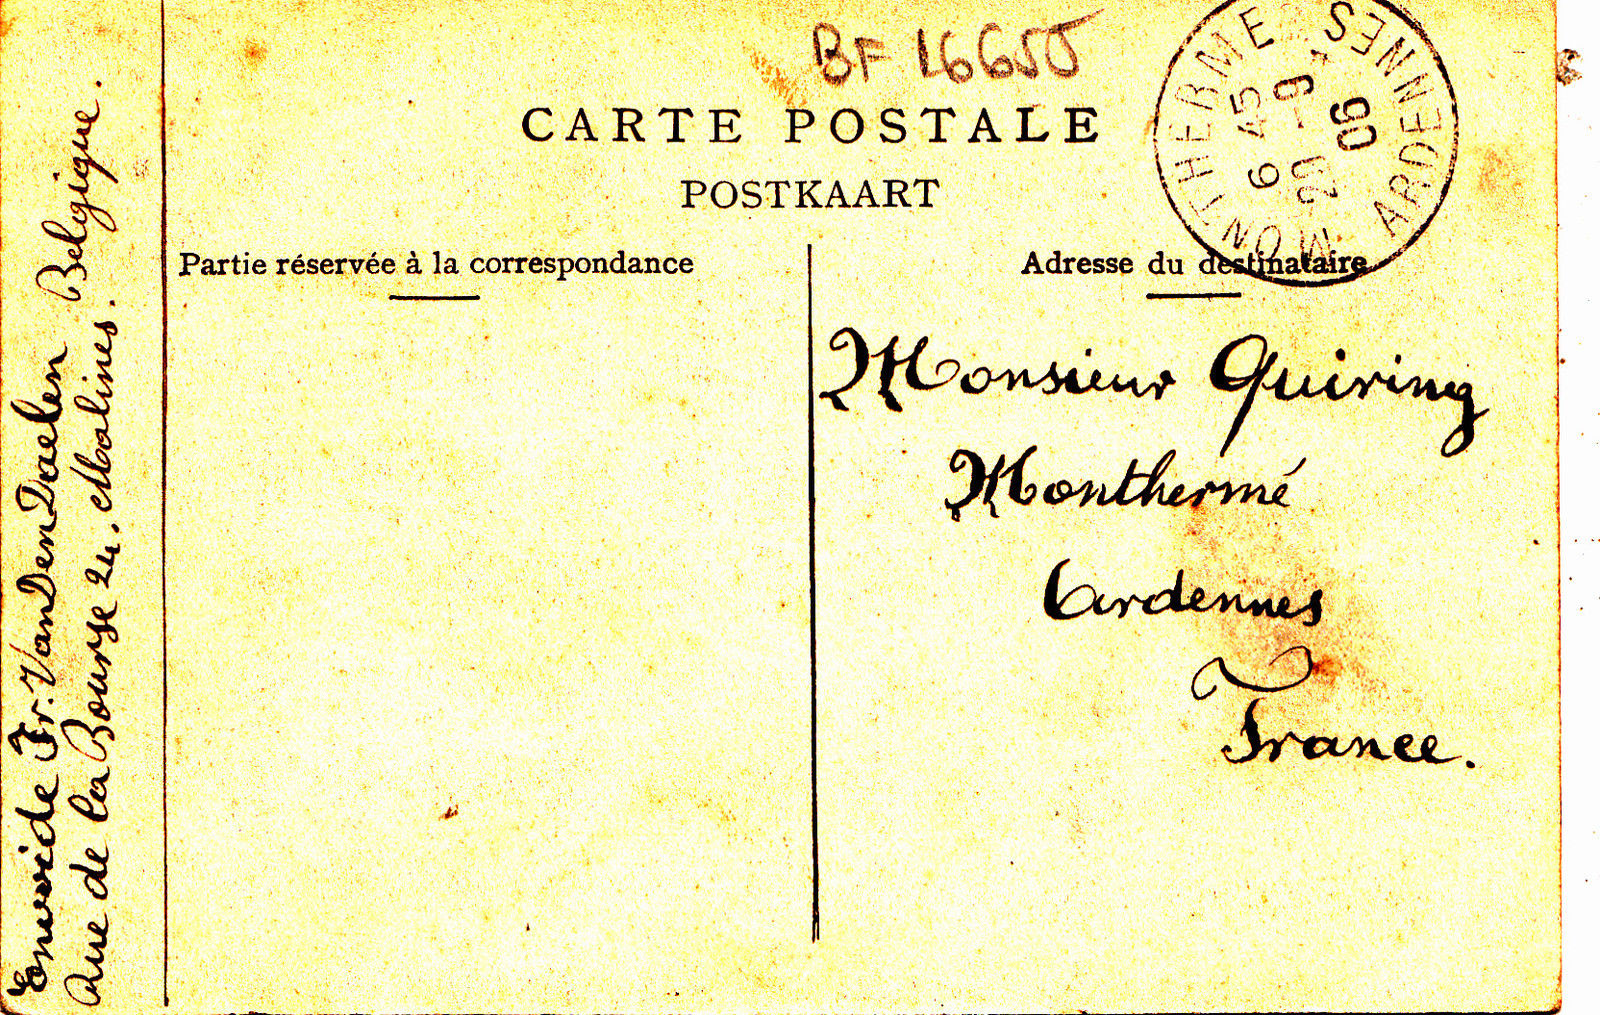 BF 16655
CARTE POSTALE
POSTKAART
Partie réservée à la correspondance
Adresse du destinataire
MONTHERME ARDENNES
6 45
27 -9
06
Monsieur Quiring
Monthermé
Ardennes
France.
Envoi de Fr. Van Den Daelen
Rue de la Bourse 24. Malines. Belgique.